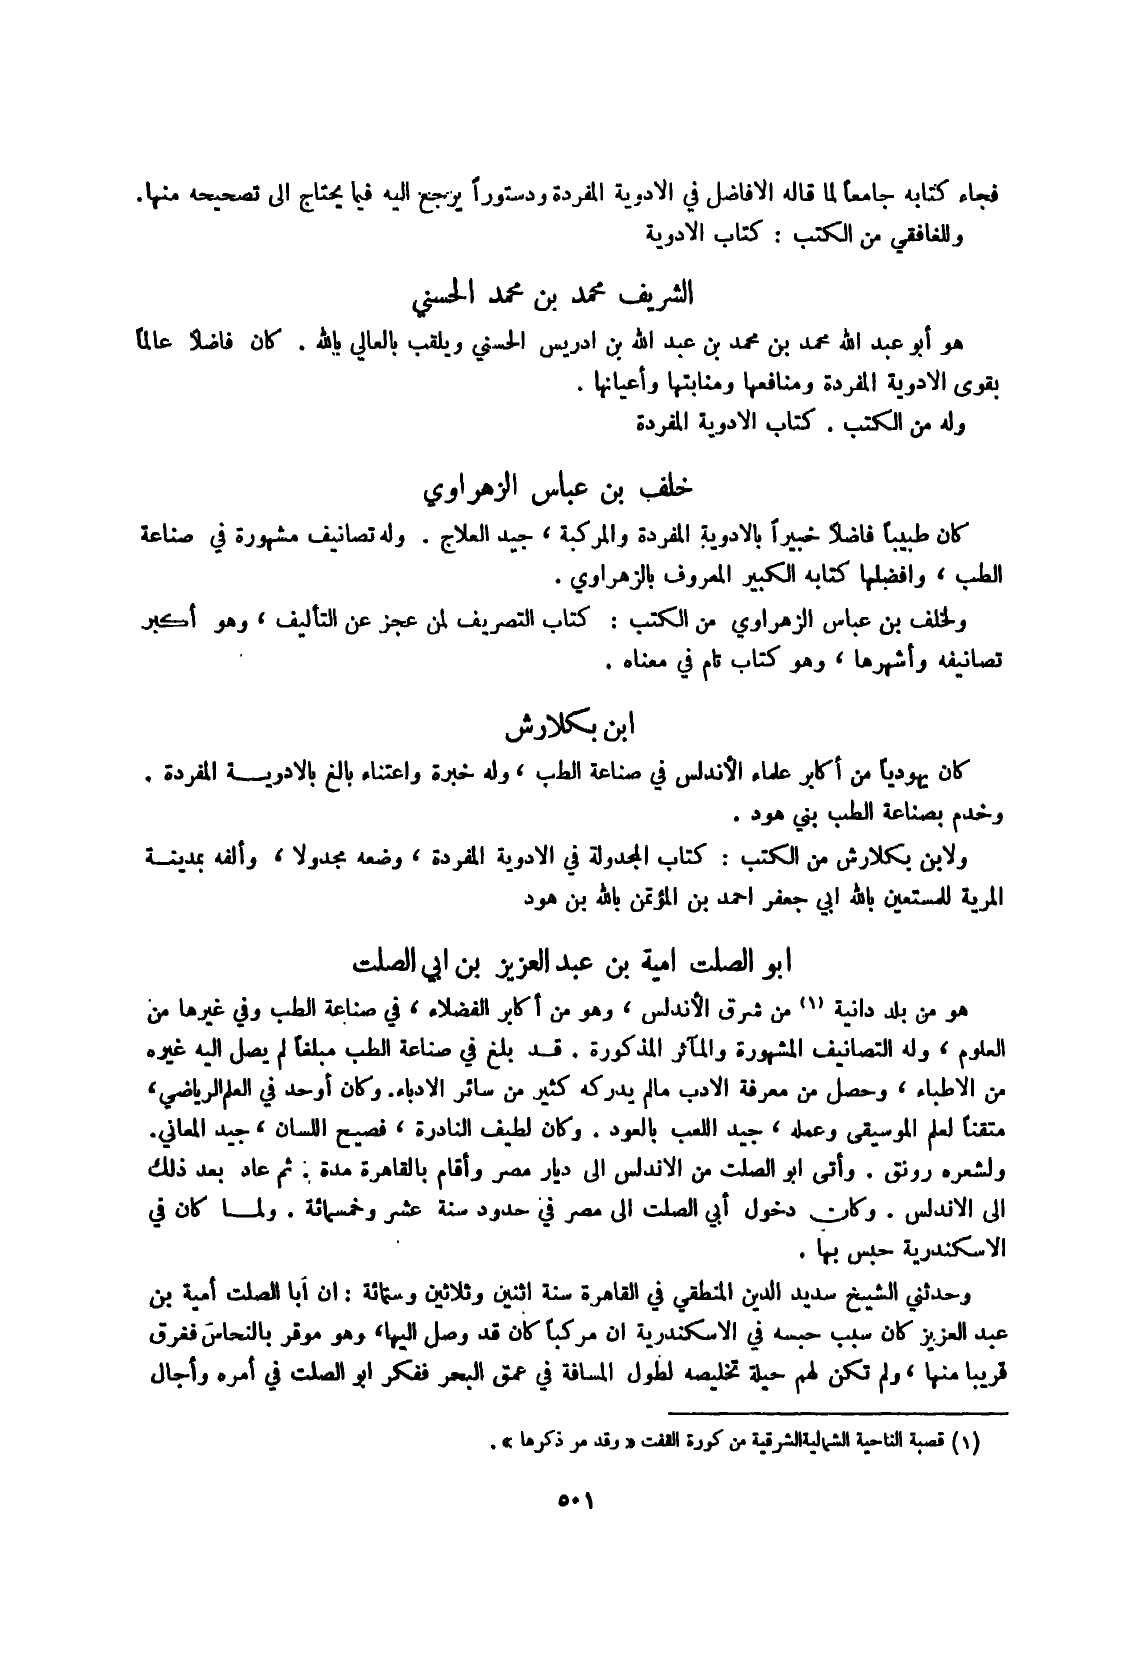 فجاء كتابه جامعاً لما قاله الافاضل في الادوية المفردة ودستوراً يرجع اليه فيما يحتاج الى تصحيحه منها.
وللغافقي من الكتب : كتاب الادوية
الشريف محمد بن محمد الحسني
هو أبو عبد الله محمد بن محمد بن عبد الله بن ادريس الحسني ويلقب بالعالي بالله . كان فاضلاً عالماً
بقوى الادوية المفردة ومنافعها ومنابتها وأعيانها .
وله من الكتب . كتاب الادوية المفردة
خلف بن عباس الزهراوي
كان طبيباً فاضلاً خبيراً بالادوية المفردة والمركبة ، جيد العلاج . وله تصانيف مشهورة في صناعة
الطب ، وافضلها كتابه الكبير المعروف بالزهراوي .
ولخلف بن عباس الزهراوي من الكتب : كتاب التصريف لمن عجز عن التأليف ، وهو أكبر
تصانيفه وأشهرها ، وهو كتاب تام في معناه .
ابن بكلارش
كان يهودياً من أكابر علماء الأندلس في صناعة الطب ، وله خبرة واعتناء بالغ بالادوية المفردة .
وخدم بصناعة الطب بني هود .
ولابن بكلارش من الكتب : كتاب المجدولة في الادوية المفردة ، وضعه مجدولا ، وألفه بمدينة
المرية للمستعين بالله ابي جعفر احمد بن المؤتمن بالله بن هود
ابو الصلت امية بن عبد العزيز بن ابي الصلت
هو من بلد دانية (١) من شرق الأندلس ، وهو من أكابر الفضلاء ، في صناعة الطب وفي غيرها من
العلوم ، وله التصانيف المشهورة والمآثر المذكورة . قد بلغ في صناعة الطب مبلغاً لم يصل اليه غيره
من الاطباء ، وحصل من معرفة الادب مالم يدركه كثير من سائر الادباء. وكان أوحد في العلم الرياضي،
متقناً لعلم الموسيقى وعمله ، جيد اللعب بالعود . وكان لطيف النادرة ، فصيح اللسان ، جيد المعاني.
ولشعره رونق . وأتى ابو الصلت من الاندلس الى ديار مصر وأقام بالقاهرة مدة ; ثم عاد بعد ذلك
الى الاندلس . وكان دخول أبي الصلت الى مصر في حدود سنة عشر وخمسمائة . ولما كان في
الاسكندرية حبس بها .
وحدثني الشيخ سديد الدين المنطقي في القاهرة سنة اثنين وثلاثين وستمائة : ان أبا الصلت أمية بن
عبد العزيز كان سبب حبسه في الاسكندرية ان مركباً كان قد وصل اليها، وهو موقر بالنحاس ففرق
قريبا منها ، ولم تكن لهم حيلة تخليصه لطول المسافة في عمق البحر ففكر ابو الصلت في أمره وأجال
(١) قصبة الناحية الشمالية الشرقية من كورة القنت « وقد مر ذكرها » .
٥٠١